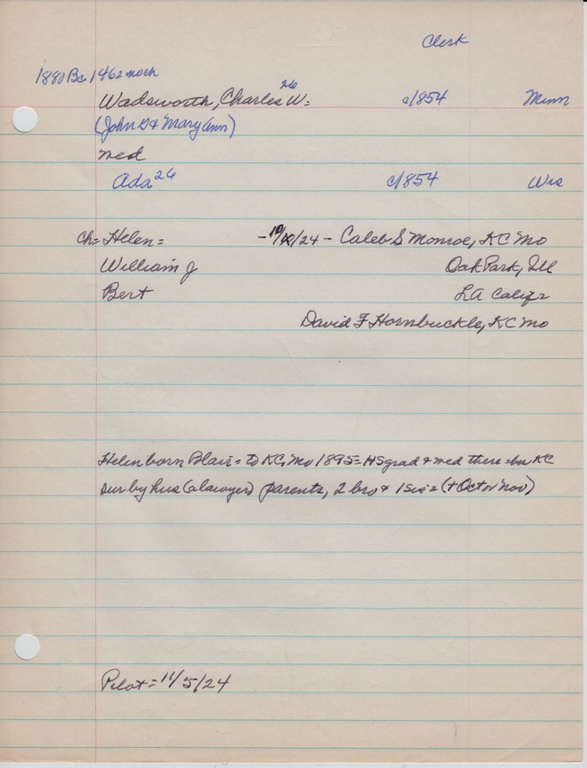 Clerk
1880 Bc 1462 noch
Wadsworth, Charles W= 26 c/854 Minn
(John G & Mary Ann)
med
Ada 26 c/854 Wis
ch= Helen= - /24 - Caleb S Monroe, KC Mo
William J Oak Park, Ill
Bert LA Calif
David F Hornbuckle, KC Mo
Helen born Blair= to KC, Mo 1895= HS grad & med there= bu KC
sur by hus (a lawyer) parents, 2 bro & 1 sis= (+ Oct or Nov)
Pilot= 11/5/24